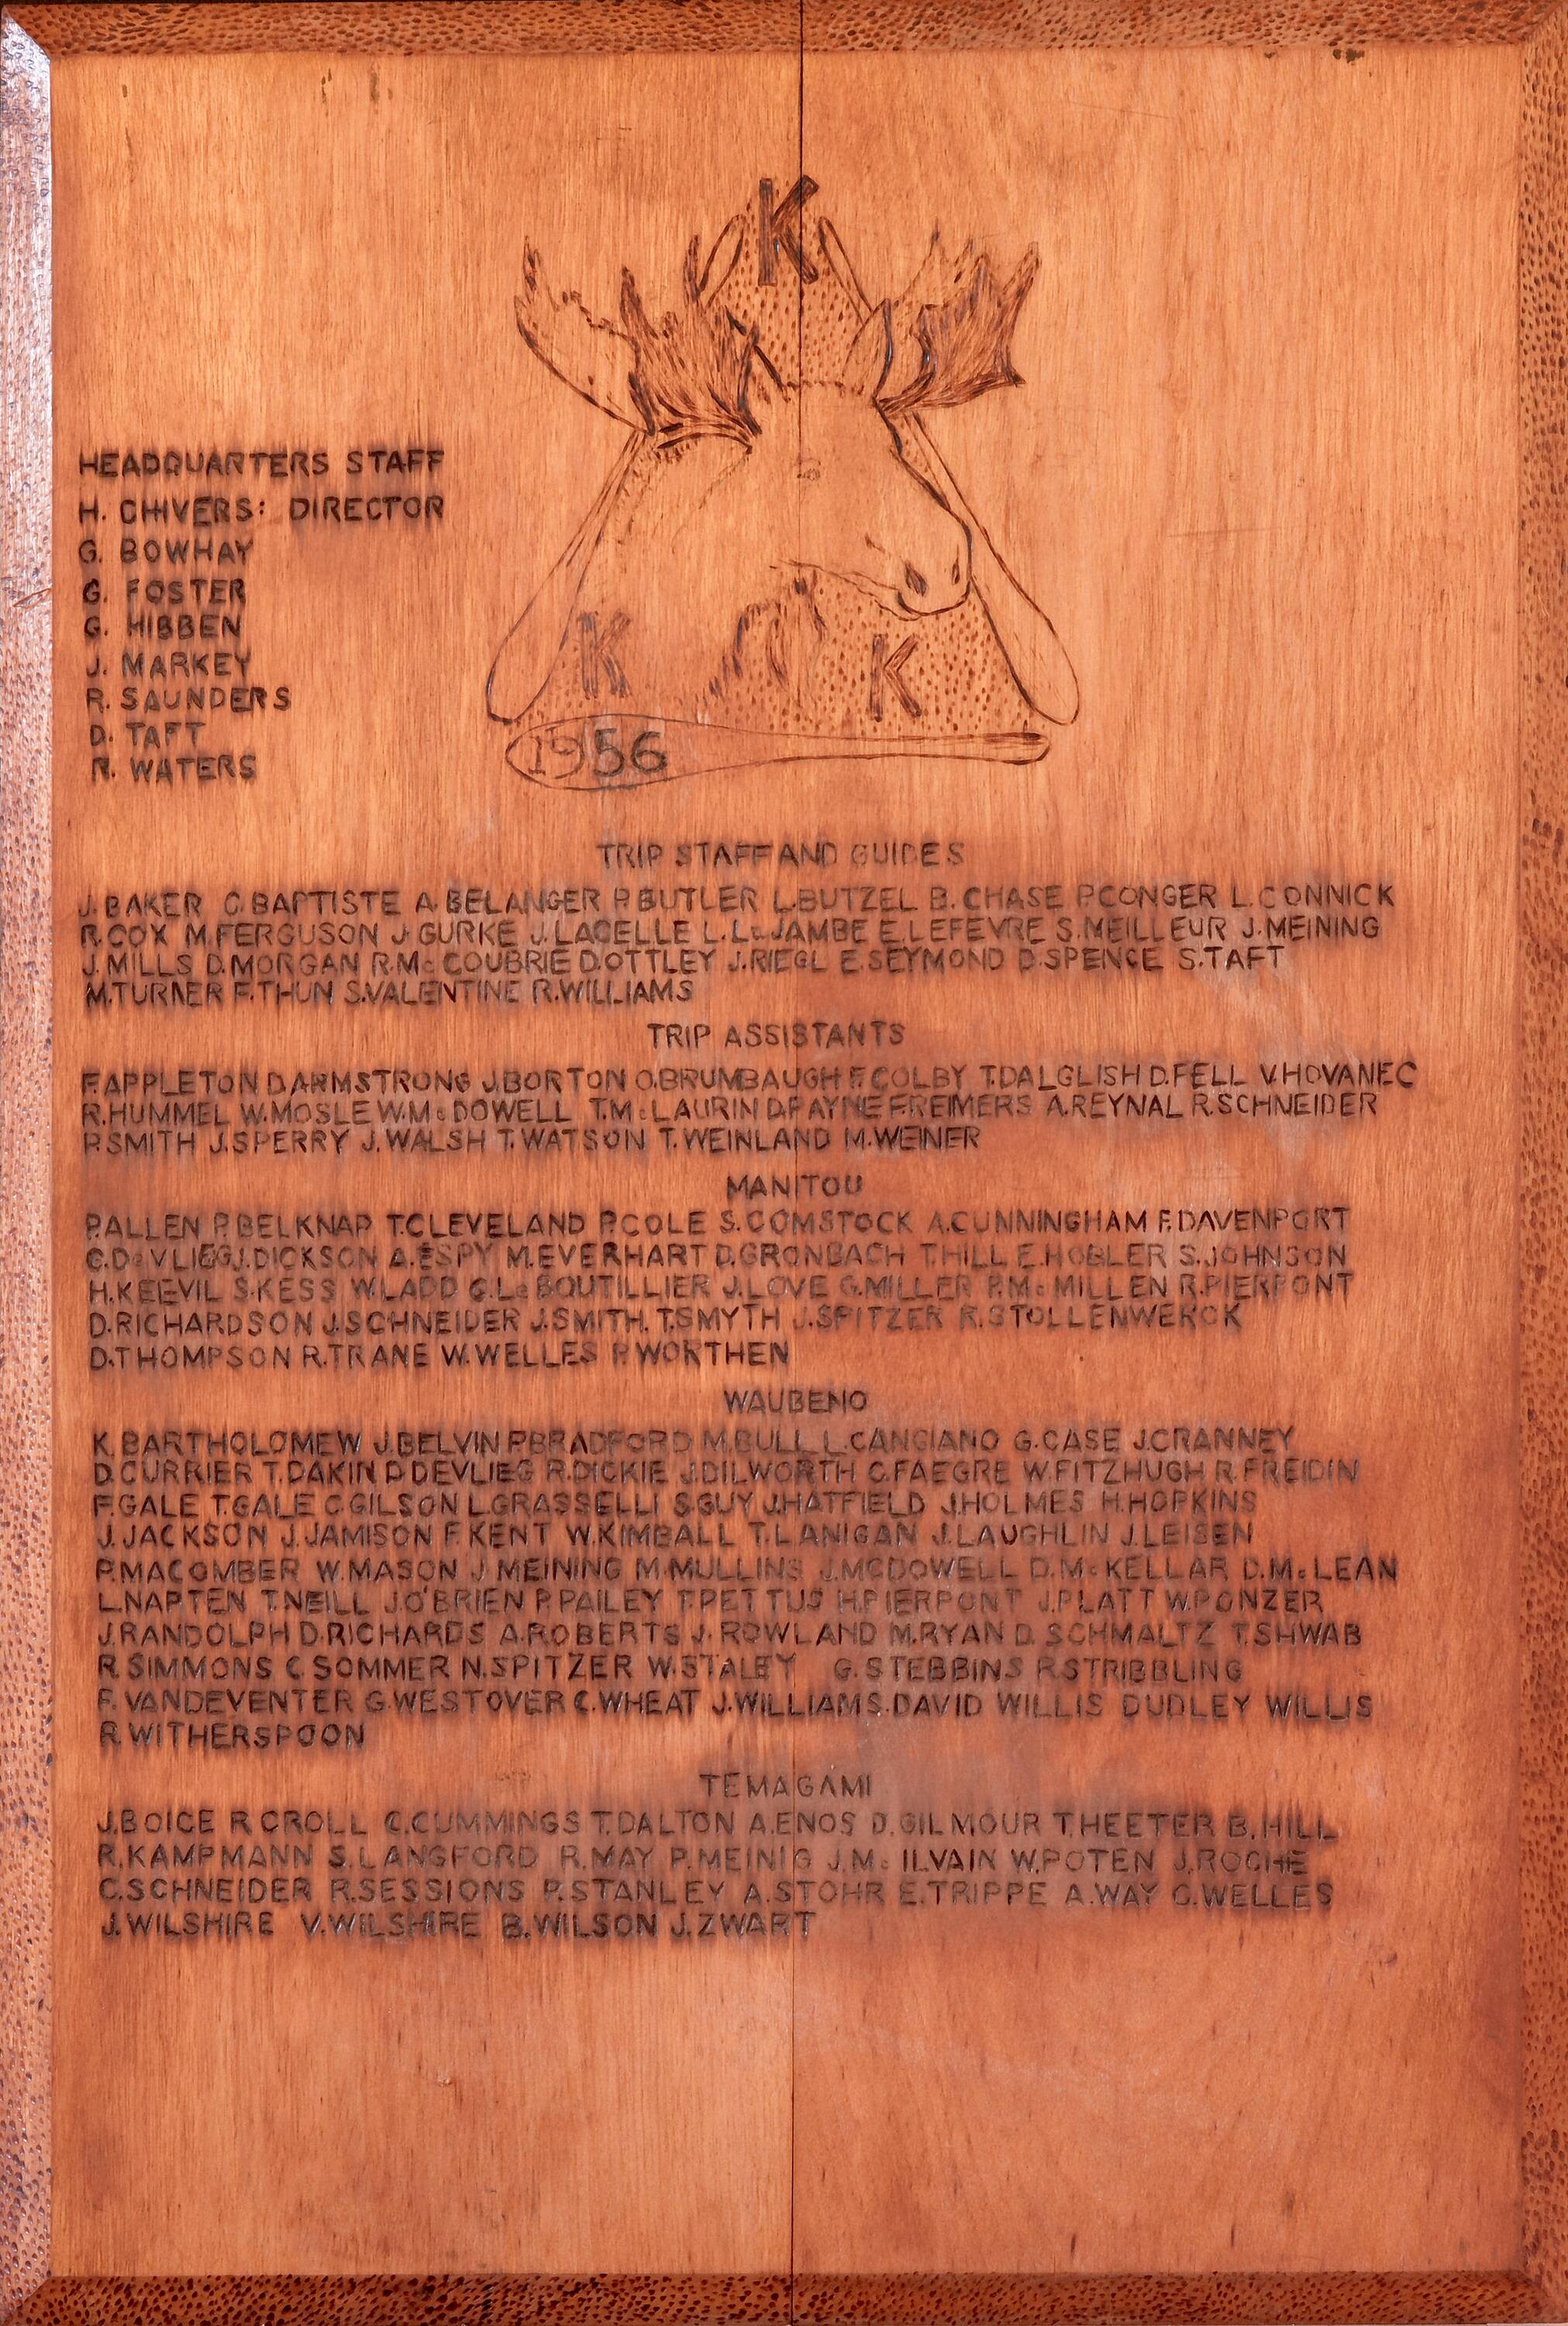 K
HEADQUARTERS STAFF
H. CHIVERS: DIRECTOR
G. BOWHAY
G. FOSTER
G. HIBBEN
J. MARKEY
R. SAUNDERS
D. TAFT
R. WATERS
K K
1956
TRIP STAFF AND GUIDES
J. BAKER C. BAPTISTE A. BELANGER P. BUTLER L. BUTZEL B. CHASE P. CONGER L. CONNICK
R. COX M. FERGUSON J. GURKE J. LACELLE L. LeJAMBE E. LEFEVRE S. MEILLEUR J. MEINING
J. MILLS D. MORGAN R. McCOUBRIE D. OTTLEY J. RIEGL E. SEYMOND D. SPENCE S. TAFT
M. TURNER F. THUN S. VALENTINE R. WILLIAMS
TRIP ASSISTANTS
F. APPLETON D. ARMSTRONG J. BORTON O. BRUMBAUGH F. COLBY T. DALGLISH D. FELL V. HOVANEC
R. HUMMEL W. MOSLE W. McDOWELL T. McLAURIN D. PAYNE F. REIMERS A. REYNAL R. SCHNEIDER
P. SMITH J. SPERRY J. WALSH T. WATSON T. WEINLAND M. WEINER
MANITOU
P. ALLEN P. BELKNAP T. CLEVELAND P. COLE S. COMSTOCK A. CUNNINGHAM F. DAVENPORT
C. DeVLIEG J. DICKSON A. ESPY M. EVERHART D. GRONBACH T. HILL E. HOBLER S. JOHNSON
H. KEEVIL S. KESS W. LADD G. LeBOUTILLIER J. LOVE G. MILLER P. McMILLEN R. PIERPONT
D. RICHARDSON J. SCHNEIDER J. SMITH. T. SMYTH J. SPITZER R. STOLLENWERCK
D. THOMPSON R. TRANE W. WELLES P. WORTHEN
WAUBENO
K. BARTHOLOMEW J. BELVIN P. BRADFORD M. BULL L. CANGIANO G. CASE J. CRANNEY
D. CURRIER T. DAKIN D. DEVLIEG R. DICKIE J. DILWORTH C. FAEGRE W. FITZHUGH R. FREIDIN
F. GALE T. GALE C. GILSON L. GRASSELLI S. GUY J. HATFIELD J. HOLMES H. HOPKINS
J. JACKSON J. JAMISON F. KENT W. KIMBALL T. LANIGAN J. LAUGHLIN J. LEISEN
P. MACOMBER W. MASON J. MEINING M. MULLINS J. MCDOWELL D. McKELLAR D. McLEAN
L. NAPTEN T. NEILL J. O'BRIEN P. PAILEY T. PETTUS H. PIERPONT J. PLATT W. PONZER
J. RANDOLPH D. RICHARDS A. ROBERTS J. ROWLAND M. RYAN D. SCHMALTZ T. SHWAB
R. SIMMONS C. SOMMER N. SPITZER W. STALEY G. STEBBINS R. STRIBBLING
F. VANDEVENTER G. WESTOVER C. WHEAT J. WILLIAMS. DAVID WILLIS DUDLEY WILLIS
R. WITHERSPOON
TEMAGAMI
J. BOICE R. CROLL C. CUMMINGS T. DALTON A. ENOS D. GILMOUR T. HEETER B. HILL
R. KAMPMANN S. LANGFORD R. MAY P. MEINIG J. McILVAIN W. POTEN J. ROCHE
C. SCHNEIDER R. SESSIONS P. STANLEY A. STOHR E. TRIPPE A. WAY C. WELLES
J. WILSHIRE V. WILSHIRE B. WILSON J. ZWART